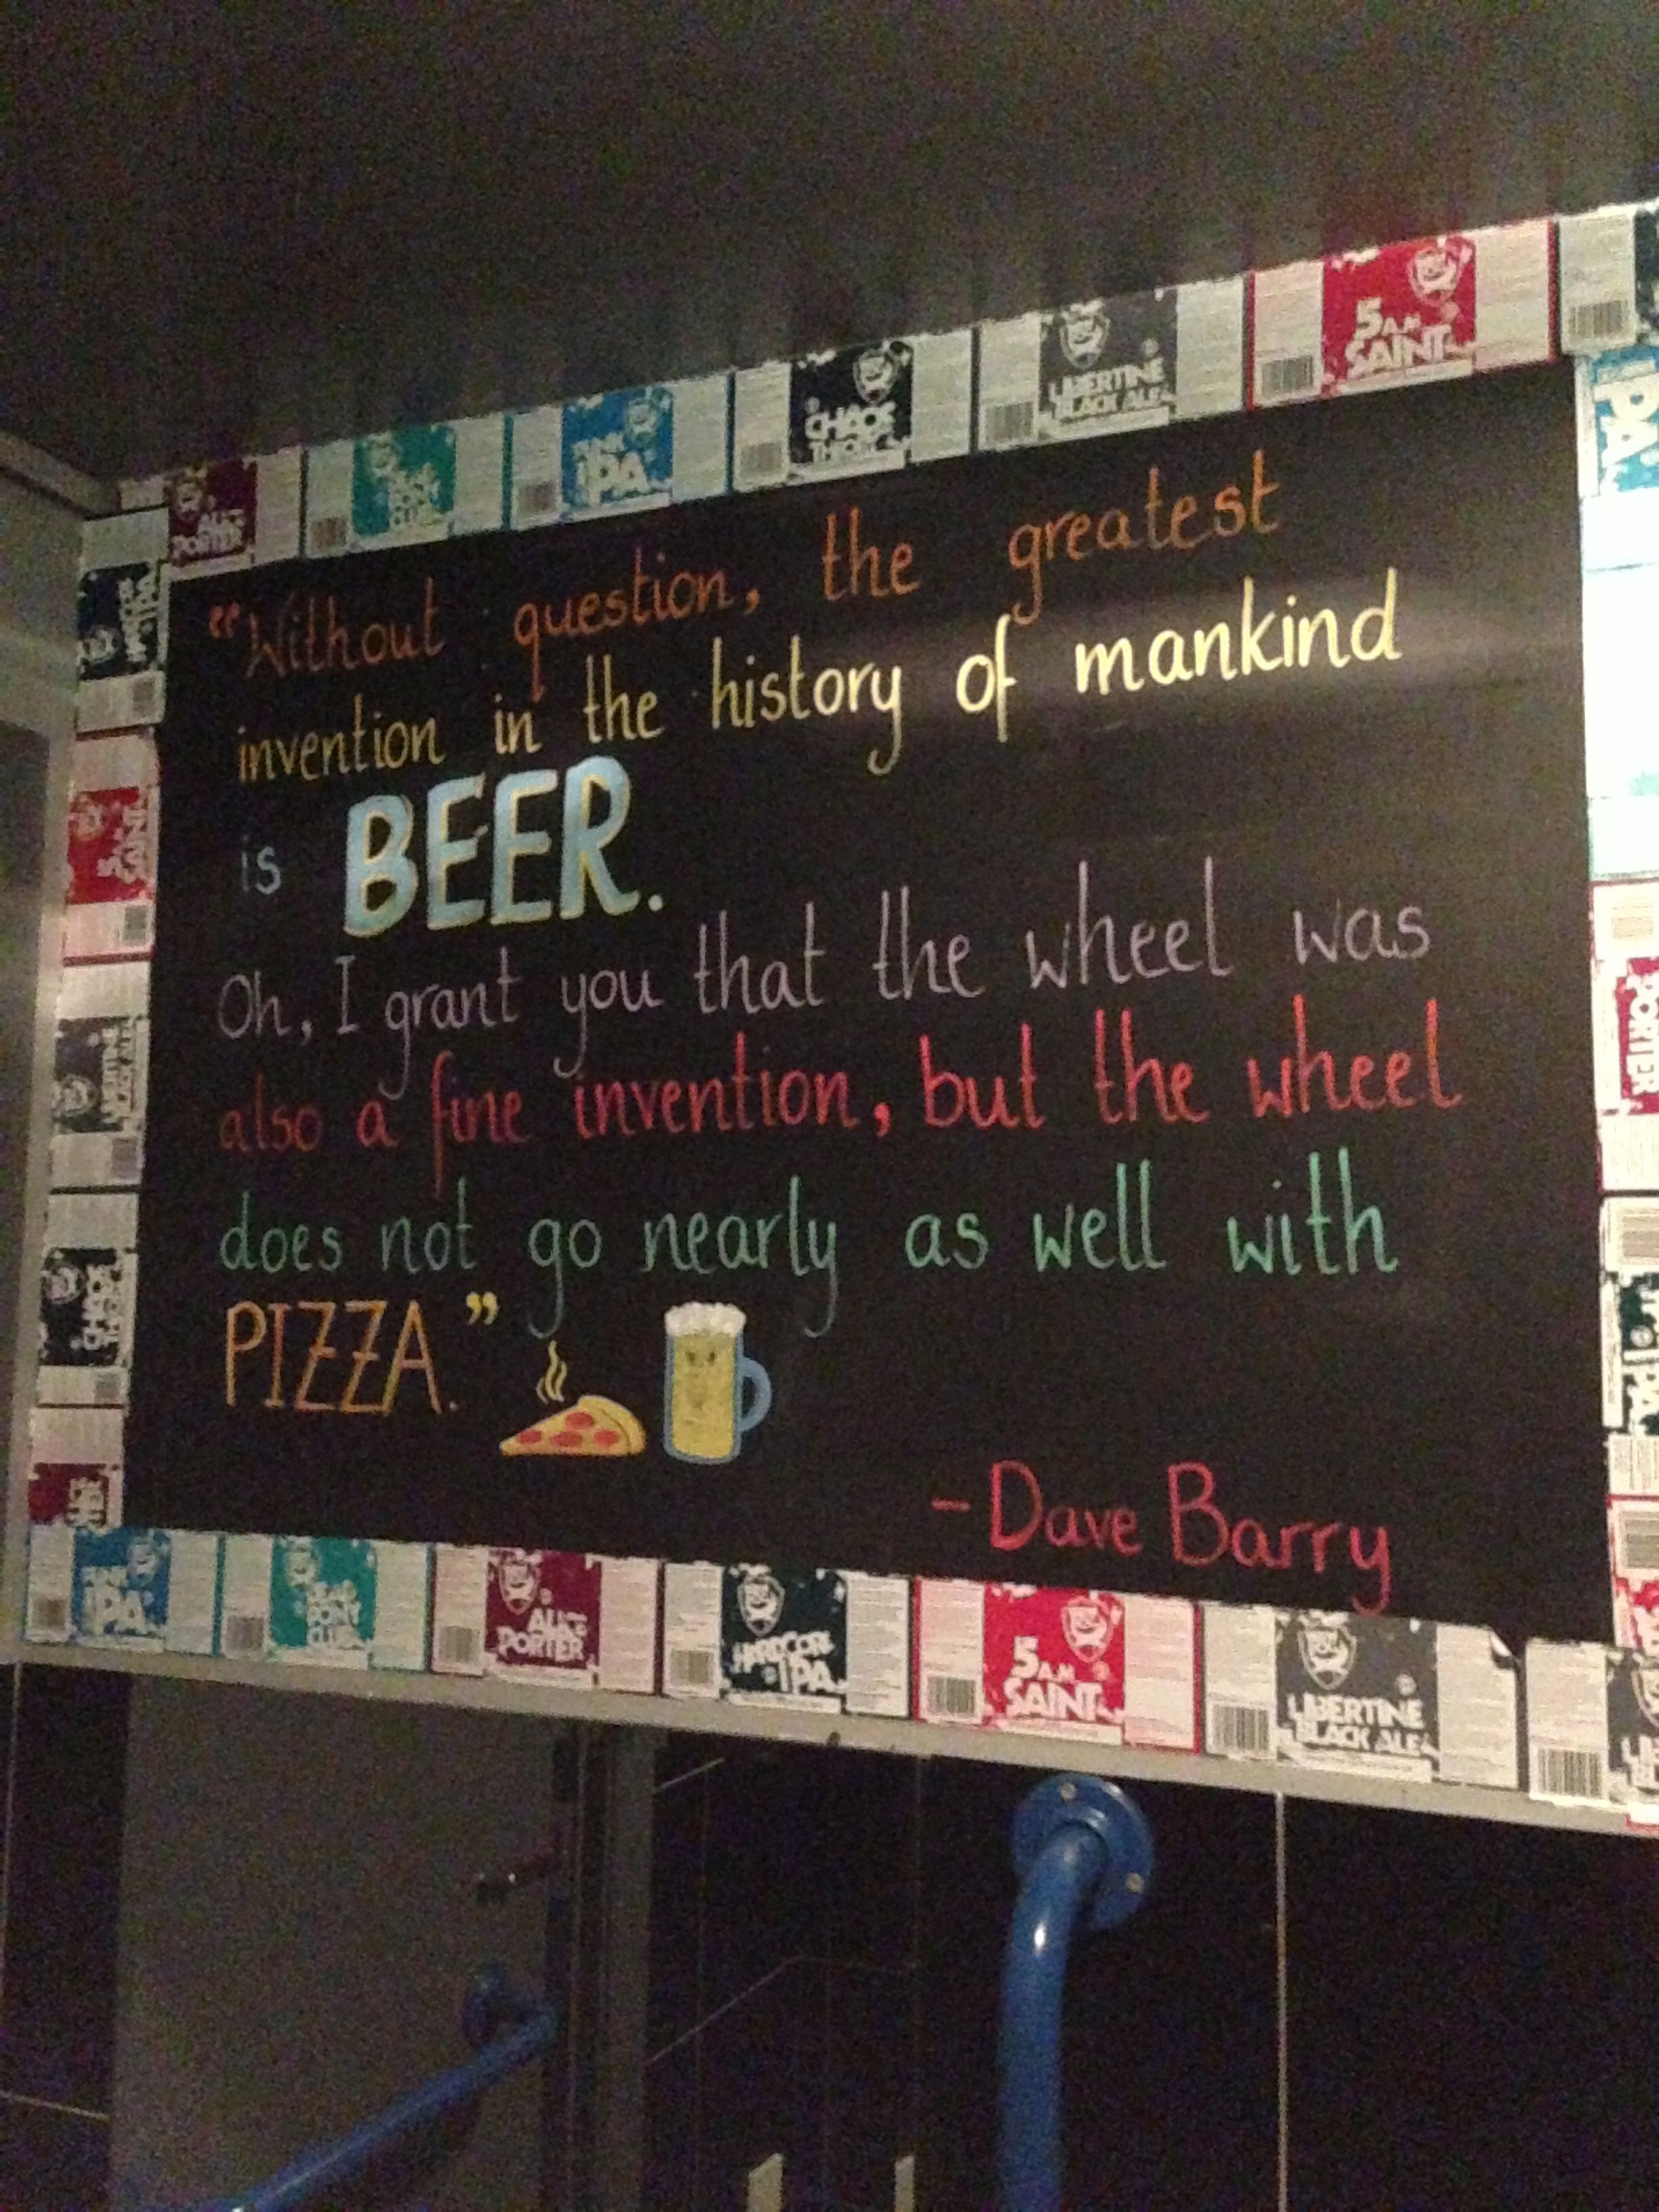 ALICE PORTER
IPA
CHAOS THEORY
LIBERTINE BLACK ALE
5 A.M. SAINT
"Without question, the greatest
invention in the history of mankind
is BEER.
Oh, I grant you that the wheel was
also a fine invention, but the wheel
does not go nearly as well with
PIZZA."
- Dave Barry
IPA
PORTER
IPA
ALICE PORTER
HARDCORE IPA
5 A.M. SAINT
LIBERTINE BLACK ALE